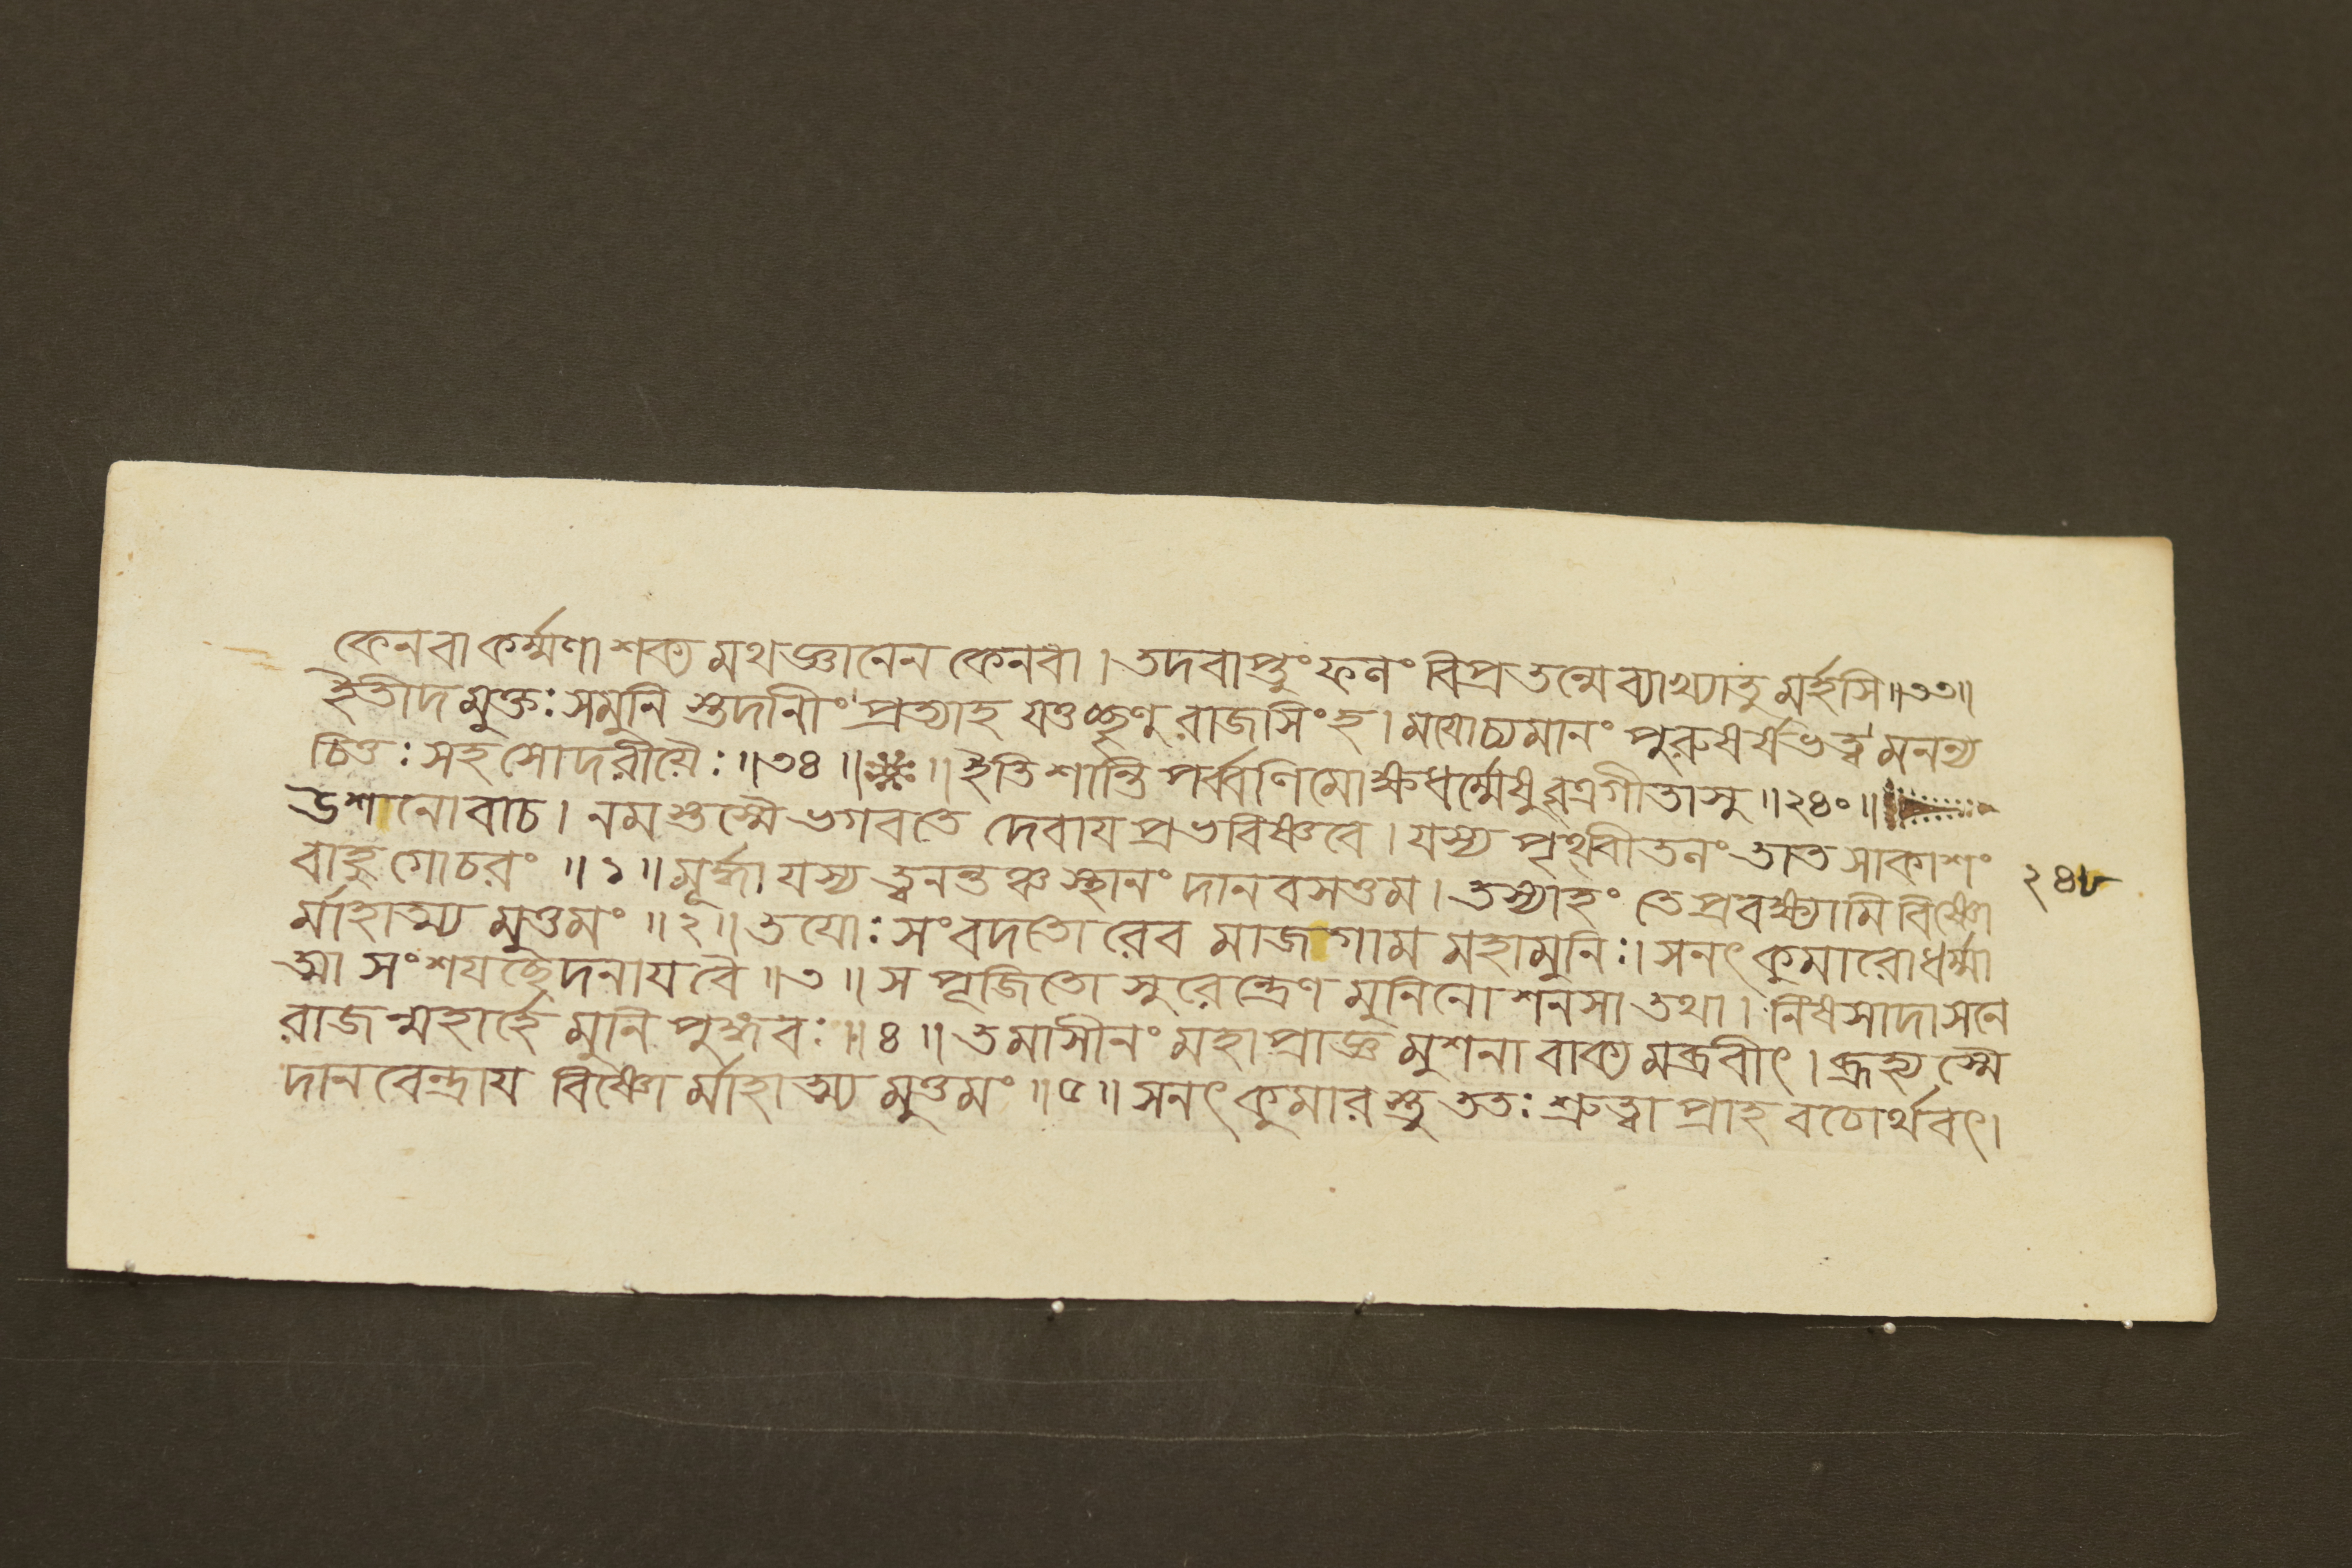 কেনবা কর্ম্মণা শক্য মথ জ্ঞানেন কেনবা । তদবাপ্তুং ফলং বিপ্র তন্মে ব্যাখ্যাতু মর্হসি ॥ ৩৩ ॥
ইতীদ মুক্তঃ সমুনি স্তদানীং প্রত্যাহ যত্তচ্ছৃণু রাজসিংহ । মযোচ্যমানং পুরুষর্ষভত্ব মনন্য
চিত্তঃ সহ সোদরীয়ৈঃ ॥ ৩৪ ॥ ※ ॥ ইতি শান্তি পর্ব্বণি মোক্ষধর্ম্মেষু বৃত্রগীতাসু ॥ ২৪০ ॥
উশানোবাচ । নমস্তস্মৈ ভগবতে দেবায প্রভবিষ্ণবে । যস্য পৃথ্বীতলং তাত সাকাশং
বাহুগোচরং ॥ ১ ॥ মূর্দ্ধা যস্য ত্বনন্তঞ্চ স্থানং দানবসত্তম । তস্যাহং তে প্রবক্ষ্যামি বিষ্ণো
র্মাহাত্ম্য মুত্তমং ॥ ২ ॥ তযোঃ সংবদতো রেব মাজগাম মহামুনিঃ । সনৎকুমারোধর্ম্মা
ত্মা সংশযচ্ছেদনায বৈ ॥ ৩ ॥ স পূজিতো সুরেন্দ্রেণ মুনিনোশনসা তথা । নিষসাদাসনে
রাজন্মহার্হে মুনি পুঙ্গবঃ ॥ ৪ ॥ তমাসীনং মহাপ্রাজ্ঞ মুশনা বাক্য মব্রবীৎ । ব্রূহ্যস্মৈ
দানবেন্দ্রায বিষ্ণো র্মাহাত্ম্য মুত্তমং ॥ ৫ ॥ সনৎকুমারস্তু ততঃ শ্রুত্বা প্রাহ বচোর্থবৎ ।
২৪৮